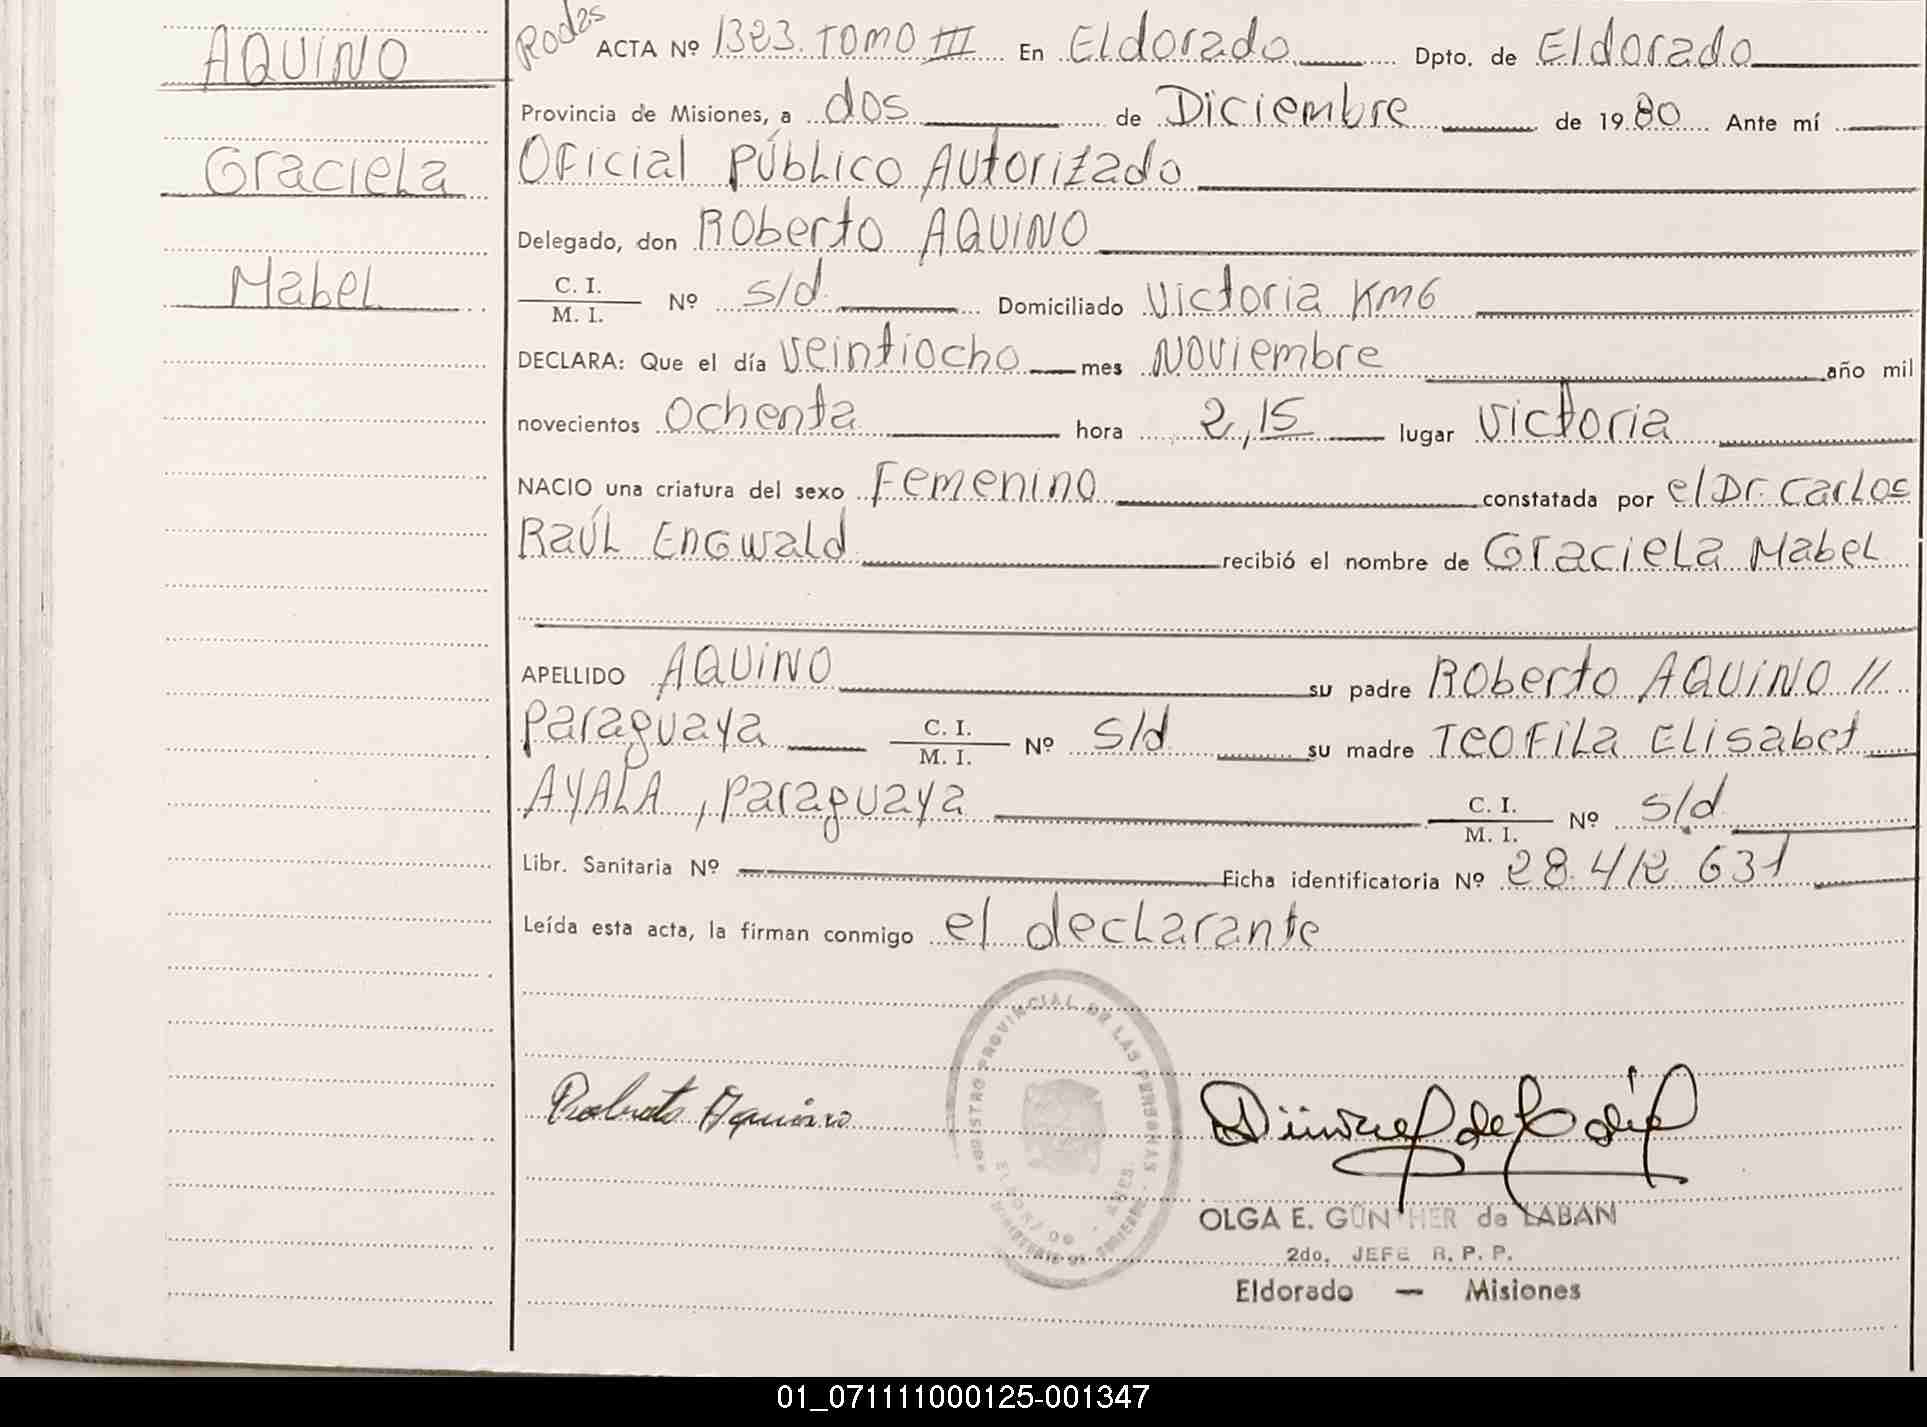 AQUINO
Graciela
Mabel
Rodas ACTA Nº 1323. TOMO III En Eldorado Dpto. de Eldorado
Provincia de Misiones, a dos de Diciembre de 1980 Ante mí
Oficial Público Autorizado
Delegado, don Roberto AQUINO
C. I. / M. I. Nº s/d. Domiciliado Victoria Km6
DECLARA: Que el día Veintiocho mes Noviembre año mil
novecientos Ochenta hora 2,15 lugar Victoria
NACIO una criatura del sexo Femenino constatada por el Dr. Carlos
Raúl Engwald recibió el nombre de Graciela Mabel
APELLIDO AQUINO su padre Roberto AQUINO //
Paraguaya C. I. / M. I. Nº s/d su madre Teofila Elisabet
AYALA, paraguaya C. I. / M. I. Nº s/d
Libr. Sanitaria Nº Ficha identificatoria Nº 28.412 631
Leída esta acta, la firman conmigo el declarante
REGISTRO PROVINCIAL DE LAS PERSONAS
ELDORADO - MNES.
MINISTERIO DE GOBIERNO
Roberto Aquino
OLGA E. GÜNTHER de LABAN
2do. JEFE R. P. P.
Eldorado — Misiones
01_071111000125-001347